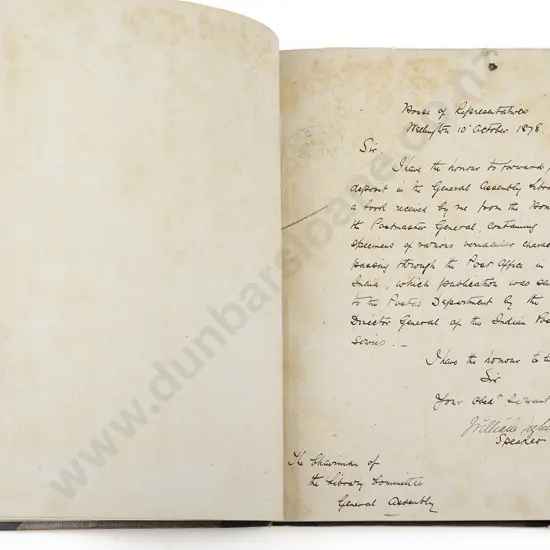 House of Representatives
Wellington 10 October 1878
Sir,
I have the honour to forward
deposit in the General Assembly
a book received by me from the
the Postmaster General, containing
specimens of various vernacular
passing through the Post Office in
India, which publication was
to the Postes Department by the
Director General of the Indian
I have the honour to
Sir
Your Obed' Servant
William
Speaker
The Chairman of
the Library Committee
General Assembly
www.dunbarsloane.co.nz